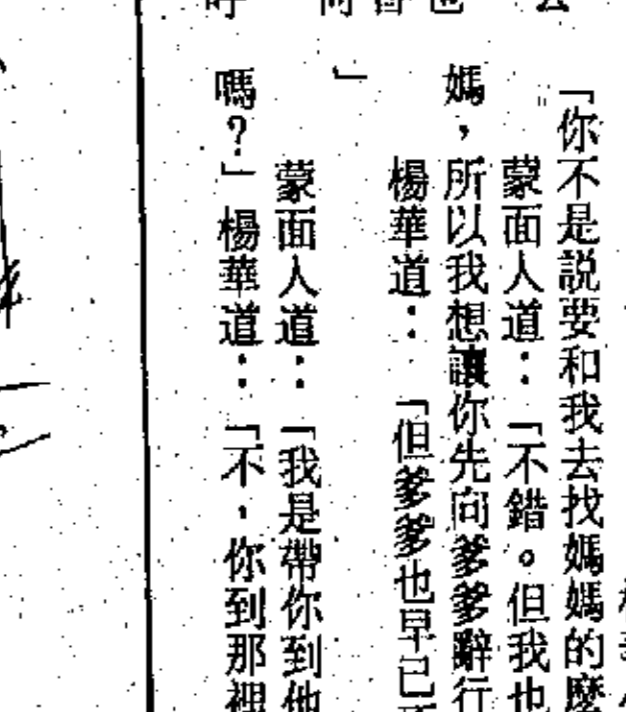 「你不是説要和我去找媽媽的麼
蒙面人道：「不錯。但我也
媽，所以我想讓你先向爹爹辭行
楊華道：「但爹爹也早已
」
蒙面人道：「我是帶你到他
嗎？」楊華道：「不，你到那裡